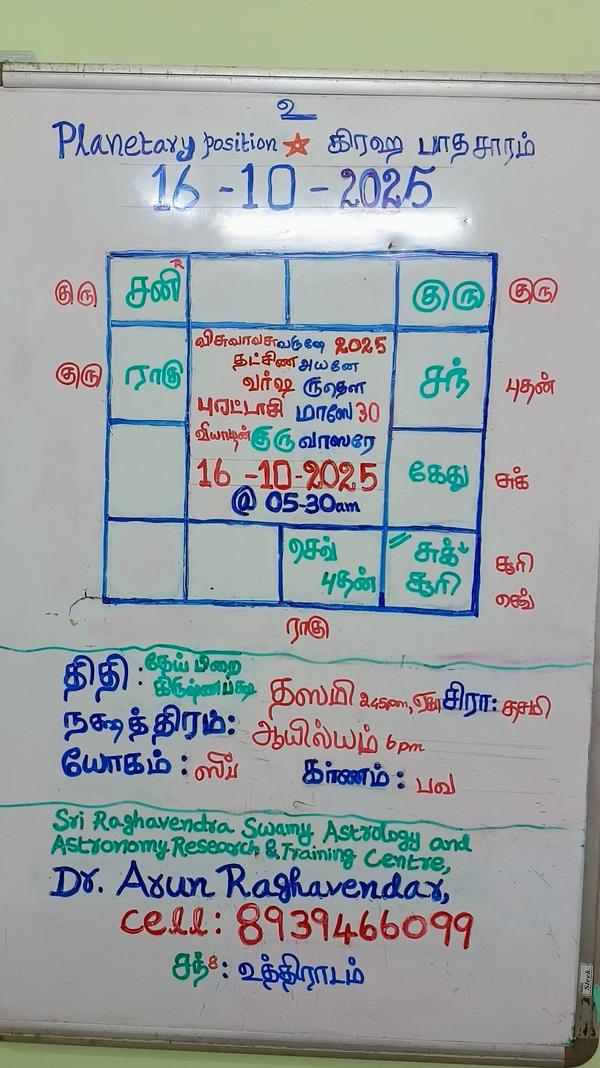 உ
Planetary position கிரஹ பாதசாரம்
16 -10 - 2025
குரு சனி R குரு குரு
குரு ராகு சந் புதன்
விசுவாவசு வருஷே 2025
தட்சிண அயனே
வர்ஷ ருதௌ
புரட்டாசி மாஸே 30
வியாழன் குரு வாஸரே
16 -10-2025
@ 05-30am
கேது சுக்
செவ் புதன்
சுக் சூரி
சூரி செவ்
ராகு
திதி : தேய் பிறை கிருஷ்ணபக்ஷ தஸமி 2.45pm, சிரா: தசமி
நக்ஷத்திரம்: ஆயில்யம் 6pm
யோகம் : கர்ணம் : பவ
Sri Raghavendra Swamy Astrology and
Astronomy Research & Training Centre,
Dr. Arun Raghavendar,
Cell : 8939466099
சந் 8 : உத்திராடம்